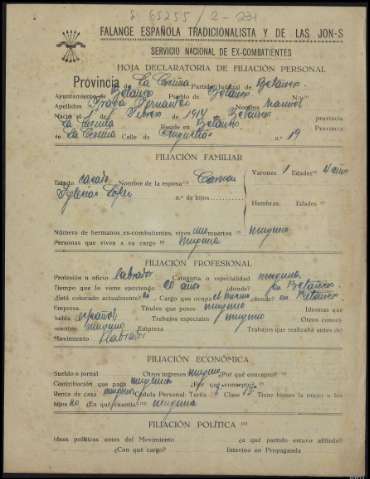 S 65255 / 2-221
FALANGE ESPAÑOLA TRADICIONALISTA Y DE LAS JON-S
SERVICIO NACIONAL DE EX-COMBATIENTES
HOJA DECLARATORIA DE FILIACIÓN PERSONAL
Provincia de La Coruña Partido Judicial de Betanzos
Ayuntamiento de Betanzos Pueblo de Betanzos
Apellidos Fernández Nombre Manuel
Nació el 1 de Febrero de 1914 en Betanzos provincia
La Coruña Reside en Betanzos Provincia
de La Coruña Calle de n.º 19
FILIACIÓN FAMILIAR
Estado casado Nombre de la esposa Carmen Varones 1 Edades 4 años
Iglesias López n.º de hijos Hembras Edades
Número de hermanos, ex-combatientes, vivos muertos ninguno
Personas que viven a su cargo ninguna
FILIACIÓN PROFESIONAL
Profesión u oficio labrador Categoría o especialidad ninguna
Tiempo que la viene ejerciendo 20 años ¿dónde? en Betanzos
¿Está colocado actualmente? Cargo que ocupa el mismo ¿dónde? en Betanzos
Empresa Títulos que posee ninguno Idiomas que
habla español Trabajos especiales ninguno Otros conoci-
mientos ninguno Empresa Trabajos que realizaba antes del
Movimiento Labrador
FILIACIÓN ECONÓMICA
Sueldo o jornal Otros ingresos ninguno ¿Por qué concepto?
Contribución que paga ninguna ¿Por qué concepto?
Renta de casa ninguna Cédula Personal: Tarifa Clase 13 Tiene bienes la mujer o los
hijos no ¿En qué cuantía? ninguna
FILIACIÓN POLÍTICA
Ideas políticas antes del Movimiento ¿a qué partido estuvo afiliado?
¿Con qué cargo? Intervino en Propaganda